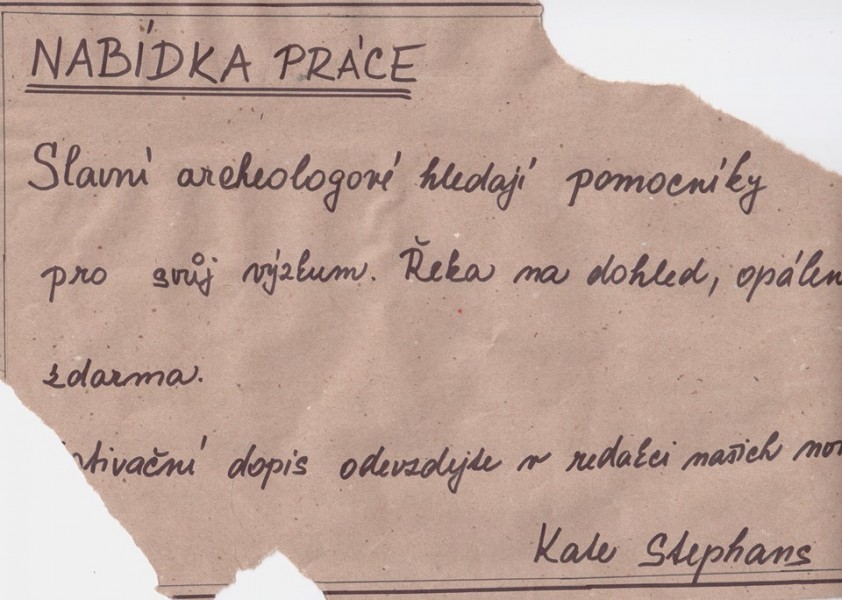 NABÍDKA PRÁCE
Slavní archeologové hledají pomocníky
pro svůj výzkum. Řeka na dohled, opálen
zdarma.
tivační dopis odevzdejte v redakci našich nov
Kate Stephans